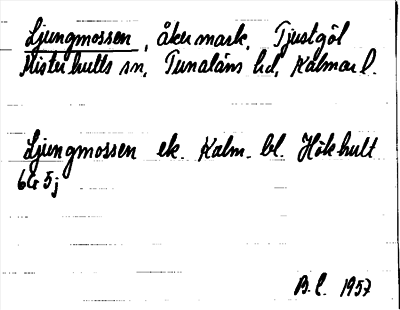 Ljungmossen, åkermark, Tjustgöl
Misterhults sn, Tunaläns hd, Kalmar l.
Ljungmossen ek. Kalm. bl. Hökhult
6G 5j
B.L. 1957